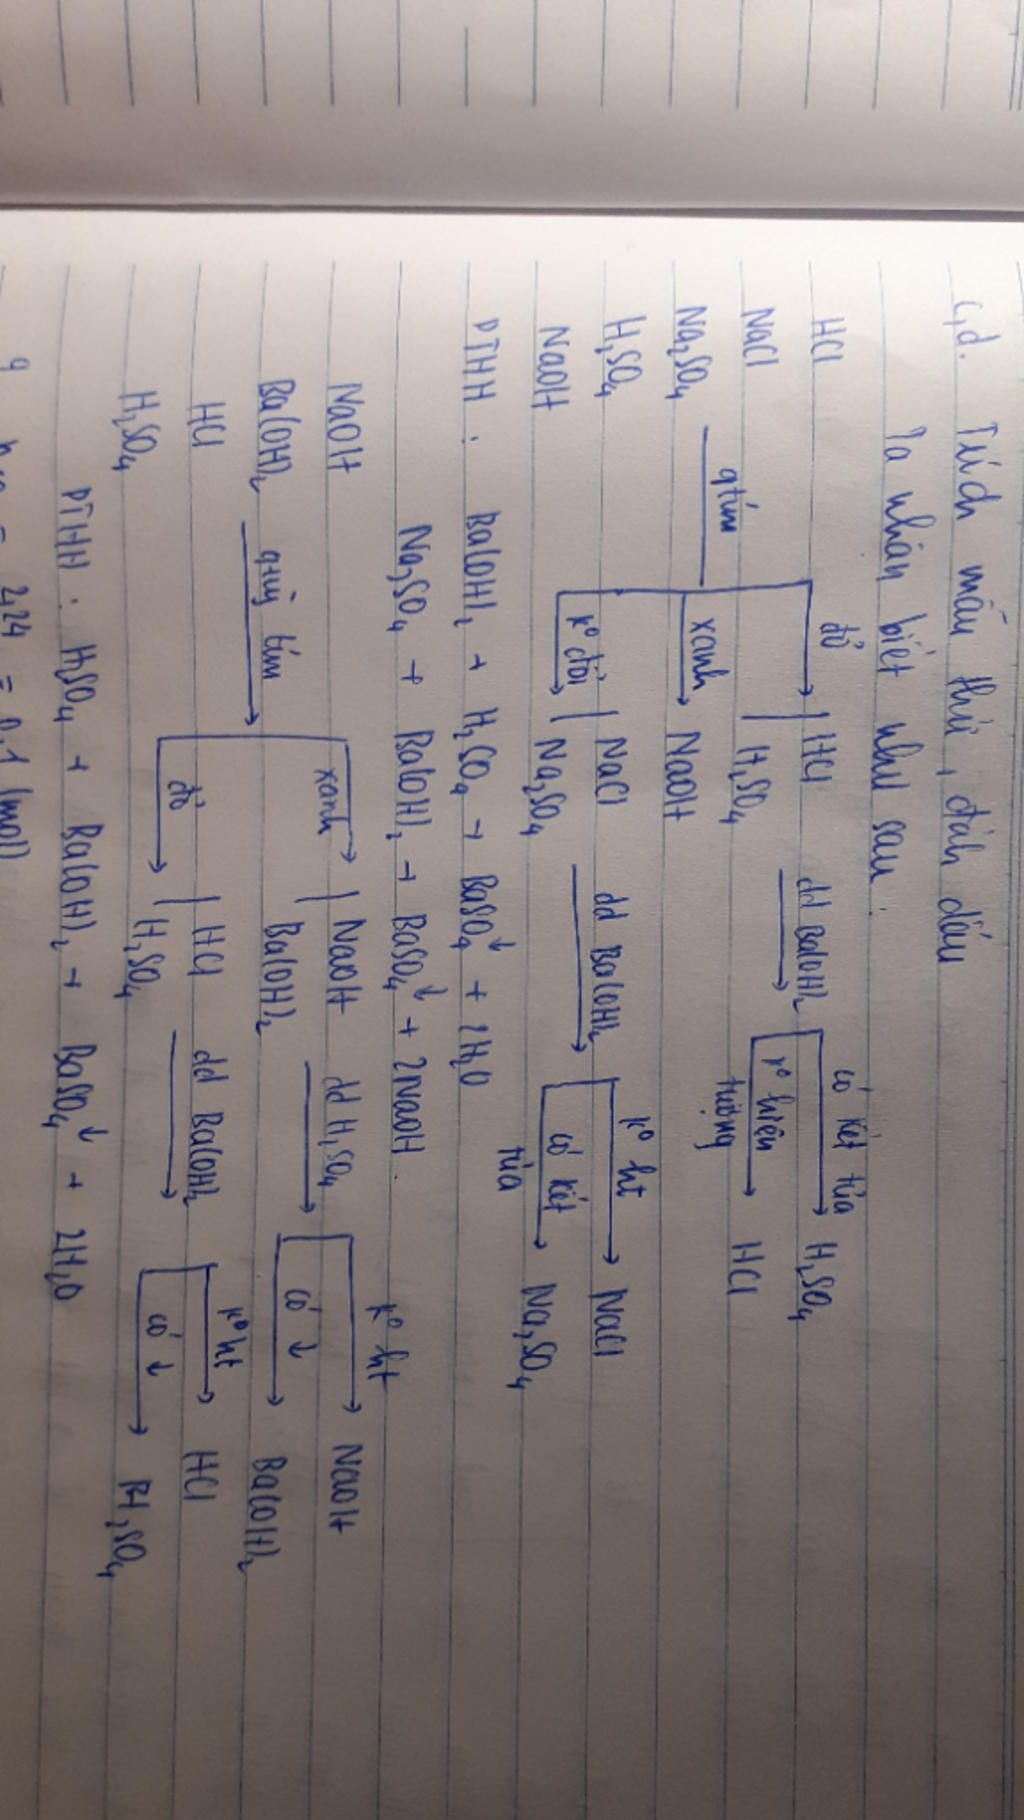 c,d. Trích mẫu thử, đánh dấu
Ta nhận biết như sau:
HCl
NaCl
Na₂SO₄
H₂SO₄
NaOH
qtím
đỏ
HCl
H₂SO₄
dd Ba(OH)₂
có kết tủa
H₂SO₄
k⁰ hiện tượng
HCl
xanh
NaOH
k⁰ đổi
NaCl
Na₂SO₄
dd Ba(OH)₂
k⁰ ht
NaCl
có kết tủa
Na₂SO₄
PTHH: Ba(OH)₂ + H₂CO₄ → BaSO₄↓ + 2H₂O
Na₂SO₄ + Ba(OH)₂ → BaSO₄↓ + 2NaOH.
NaOH
Ba(OH)₂
HCl
H₂SO₄
quỳ tím
xanh
NaOH
Ba(OH)₂
dd H₂SO₄
k⁰ ht
NaOH
có ↓
Ba(OH)₂
đỏ
HCl
H₂SO₄
dd Ba(OH)₂
k⁰ ht
HCl
có ↓
H₂SO₄
PTHH: H₂SO₄ + Ba(OH)₂ → BaSO₄↓ + 2H₂O
= 2,24 = 0,1 (mol)